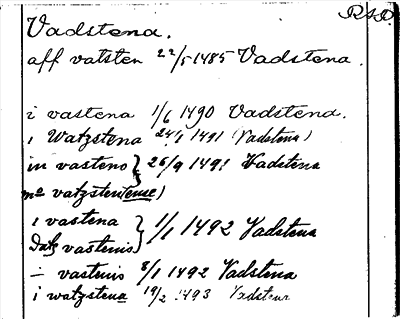 RAÖ.
Vadstena.
aff vatsten 22/5 1485 Vadstena.
i vastena 1/6 1490 Vadstena.
i Watzstena 24/1 1491 (Vadstena)
in vasteno } 26/9 1491 Vadstena
vatzsten(ense)
i vastena } 1/1 1492 Vadstena
Dat vastenis
— vastenis 8/1 1492 Vadstena
i watzstena 19/2 1493 Vadstena